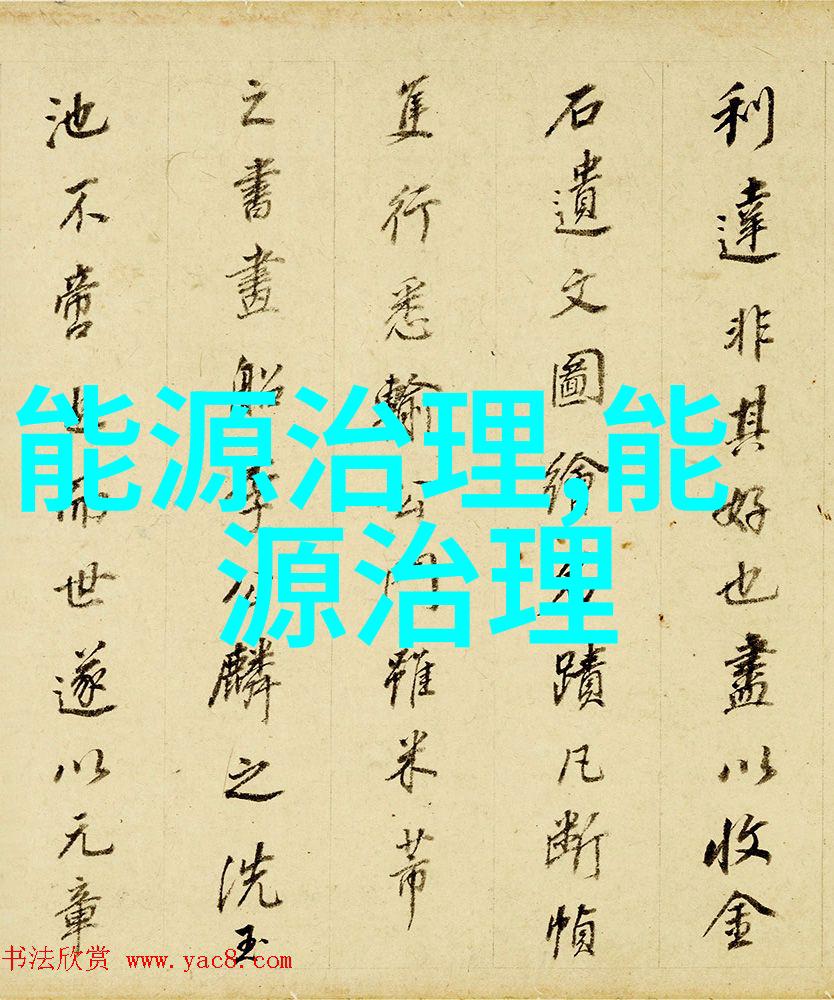 利達非其好也盡以收金
石遺文圖繪名蹟凡斷幀
隻行悉輸公門雖米芾
之書畫船李公麟之洗玉
池不啻過而世遂以元章
能源治理,能
源治理
书法欣赏 www.yac8.com